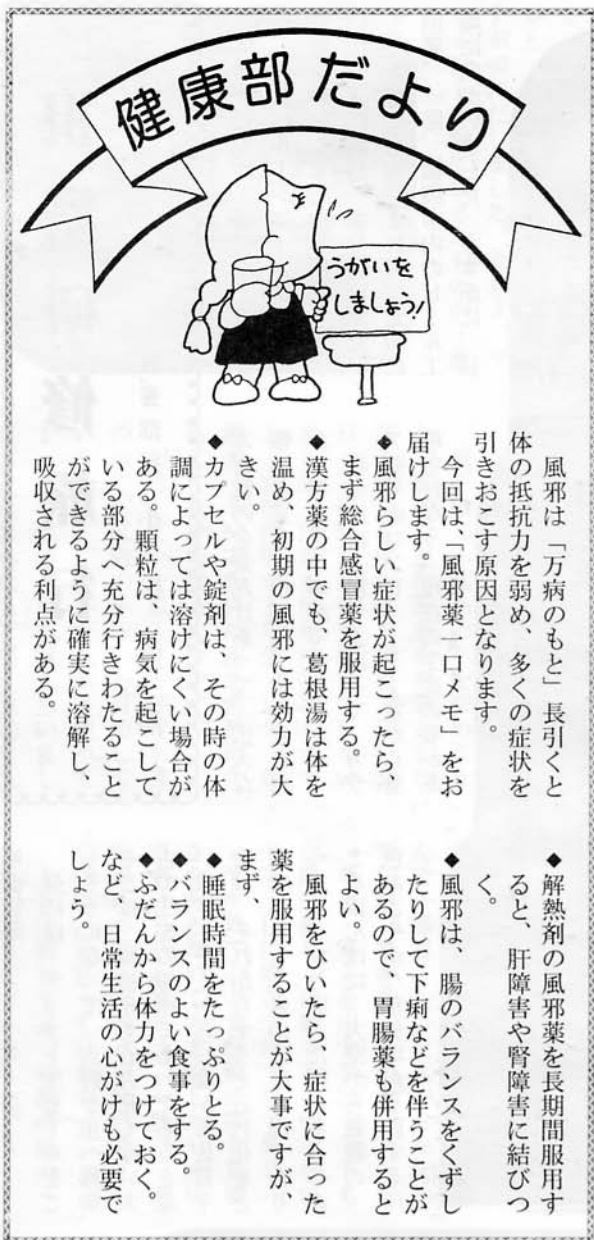 健康部だより
うがいを
しましょう!
風邪は「万病のもと」長引くと
体の抵抗力を弱め、多くの症状を
引きおこす原因となります。
今回は、「風邪薬一口メモ」をお
届けします。
◆風邪らしい症状が起こったら、
まず総合感冒薬を服用する。
◆漢方薬の中でも、葛根湯は体を
温め、初期の風邪には効力が大
きい。
◆カプセルや錠剤は、その時の体
調によっては溶けにくい場合が
ある。顆粒は、病気を起こして
いる部分へ充分行きわたること
ができるように確実に溶解し、
吸収される利点がある。
◆解熱剤の風邪薬を長期間服用す
ると、肝障害や腎障害に結びつ
く。
◆風邪は、腸のバランスをくずし
たりして下痢などを伴うことが
あるので、胃腸薬も併用すると
よい。
風邪をひいたら、症状に合った
薬を服用することが大事ですが、
まず、
◆睡眠時間をたっぷりとる。
◆バランスのよい食事をする。
◆ふだんから体力をつけておく。
など、日常生活の心がけも必要で
しょう。